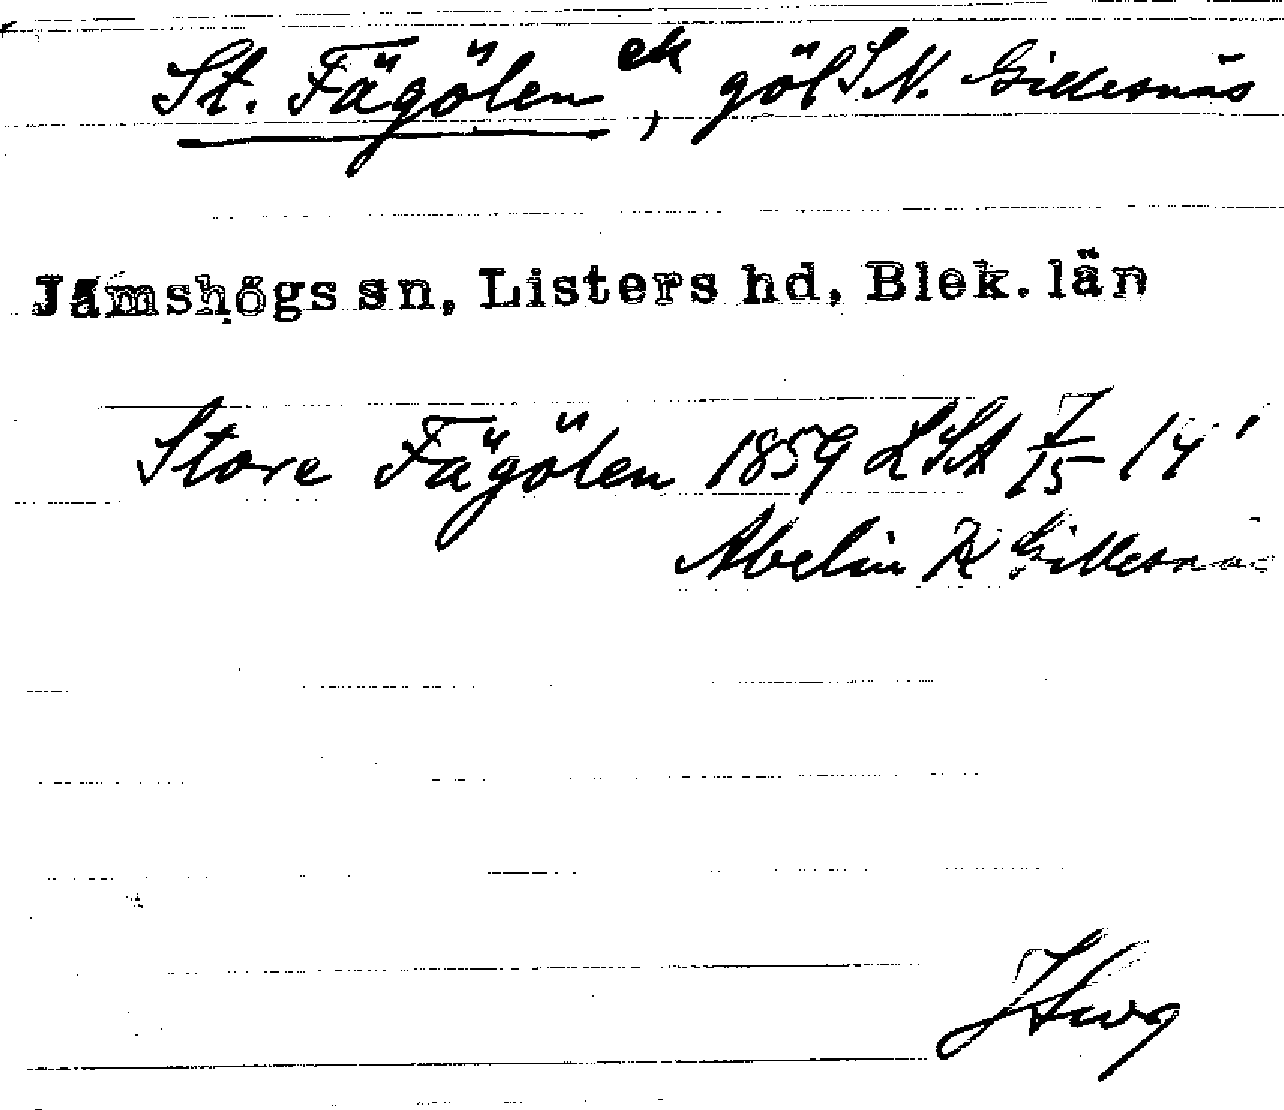 St. Fägölen ek, göl S N. Gillesnäs
Jämshögs sn, Listers hd, Blek. län
Store Fägölen 1859 LSA 7/15 14'
Abelin K Gillesnäs